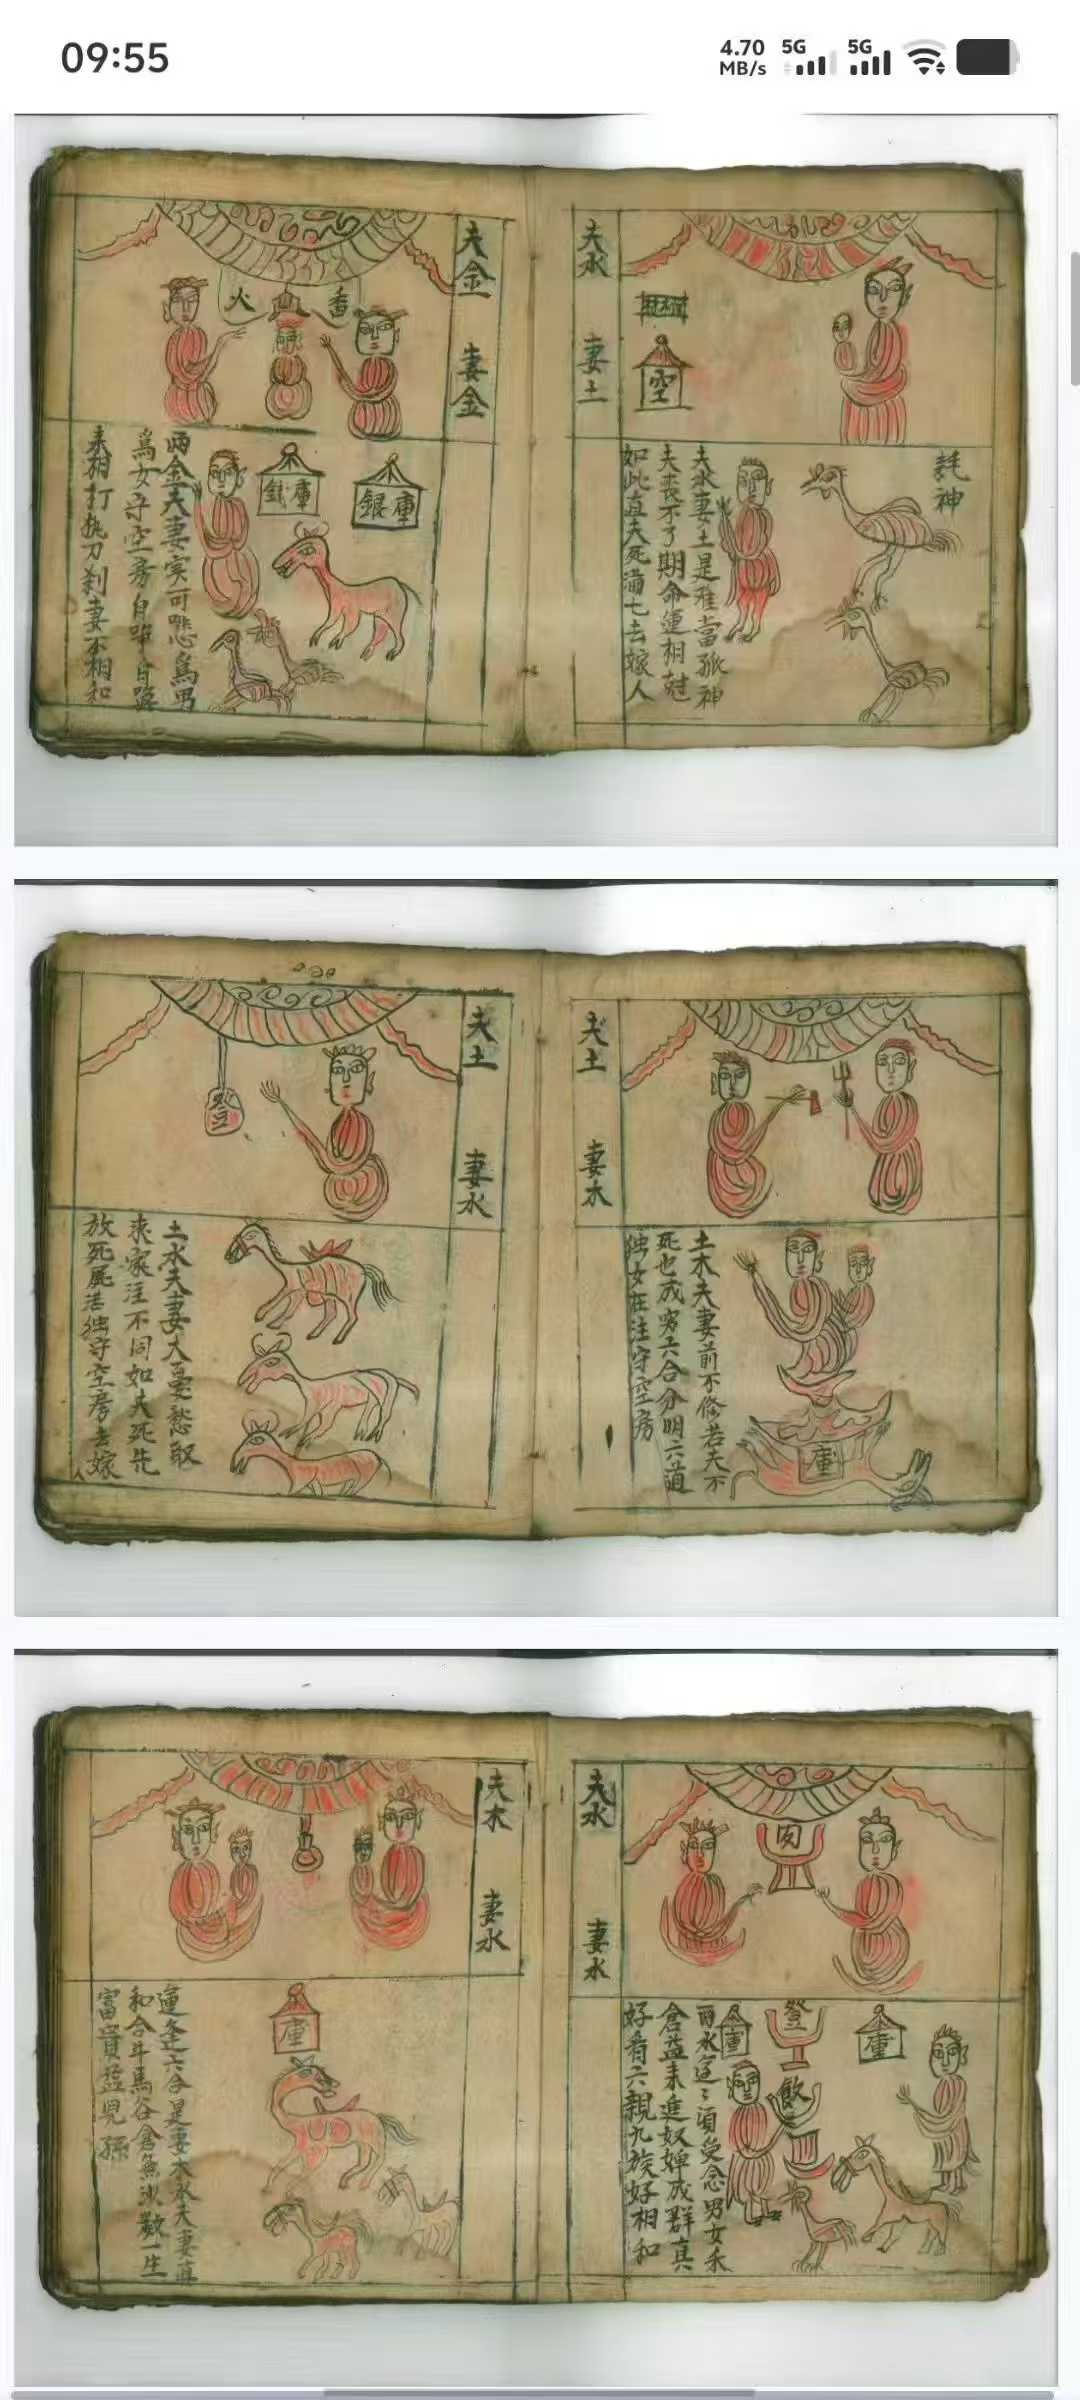 09:55
4.70 MB/s
5G
5G
夫金 妻金
火
香
銀庫
庫
兩金夫妻实可悲為男
為女守空房自
來相打执刀剎妻不相和
夫水 妻土
空
夫水妻土是
當孤神
夫喪不了期命運相
如此直夫死满七去嫁人
託神
夫土 妻水
登
土水夫妻大憂愁取
來家注不同如夫死先
放死屍法独守空房去嫁
人
夫土 妻木
土木夫妻前不修若夫不
死也成
六合分明六道
独女在注守空房
庫
夫木 妻水
庫
運逢六合是妻木水夫妻真
和合牛馬谷倉無沙數一生
富貴益見孫
夫水 妻水
肉
登
庫
庫
飲
兩水
須受念男女禾
倉益來進奴婢成群真
好看六親九族好相和